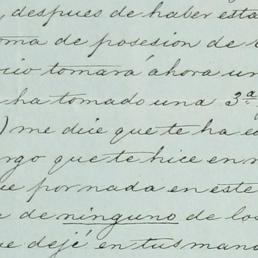 , despues de haber esta
oma de posesion de
cio tomará ahora un
ha tomado una 3ª
) me dice que te ha e
rgo que te hice en
ue por nada en este
de ninguno de los
ue dejé en tus mano